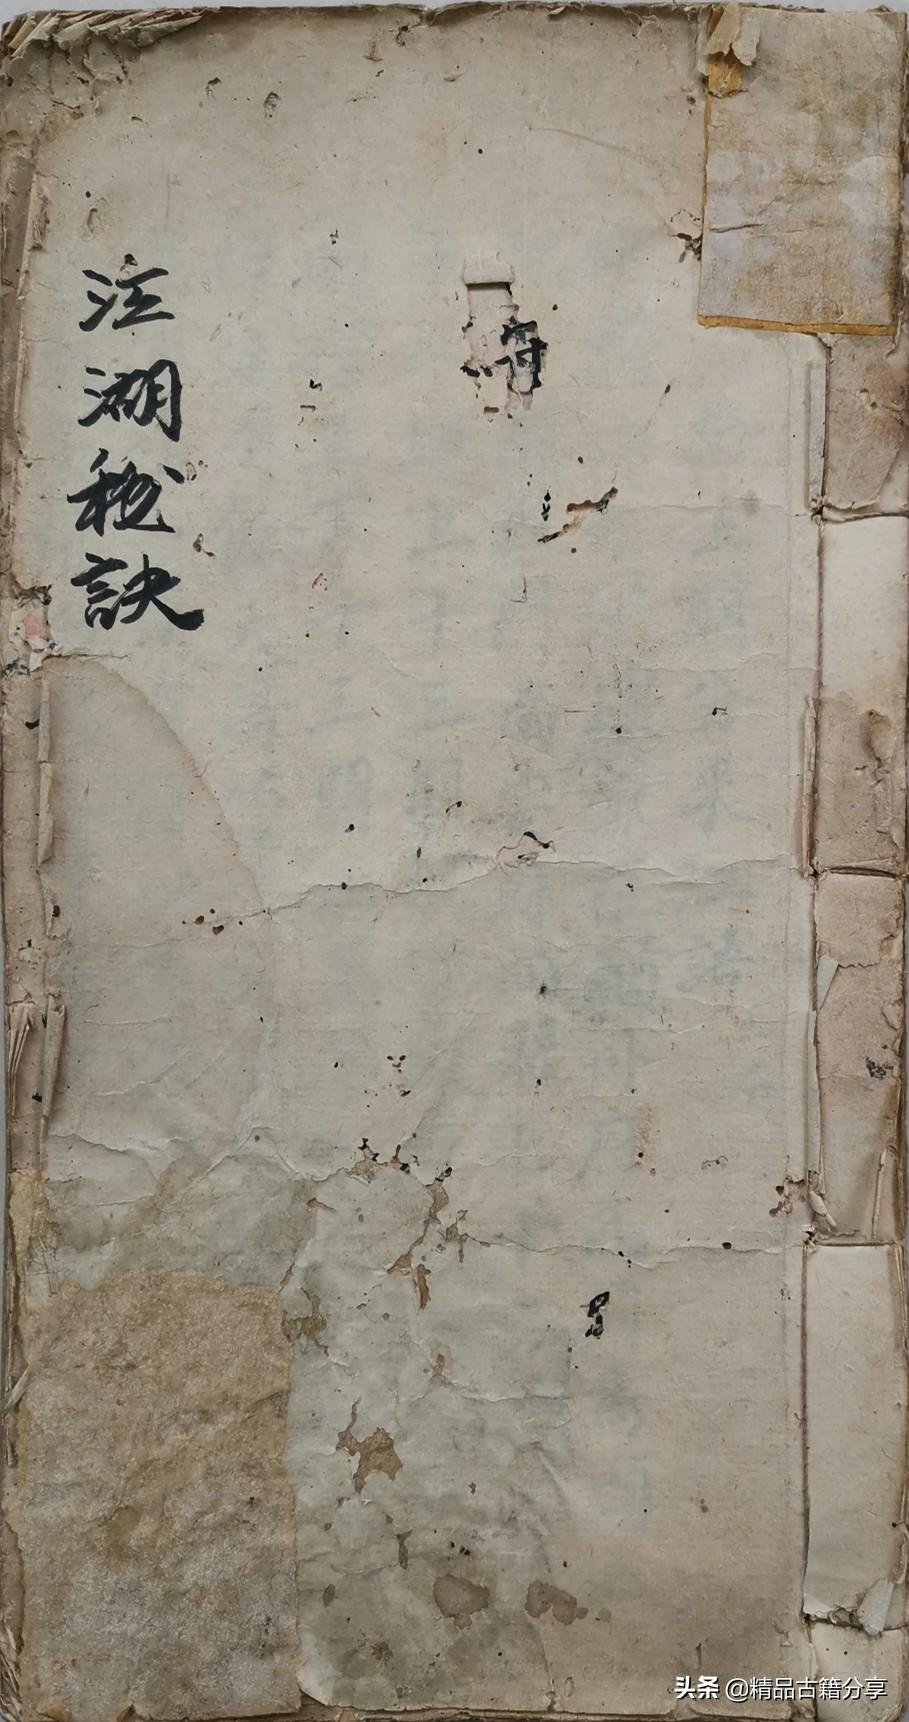 江湖秘訣
头条 @精品古籍分享